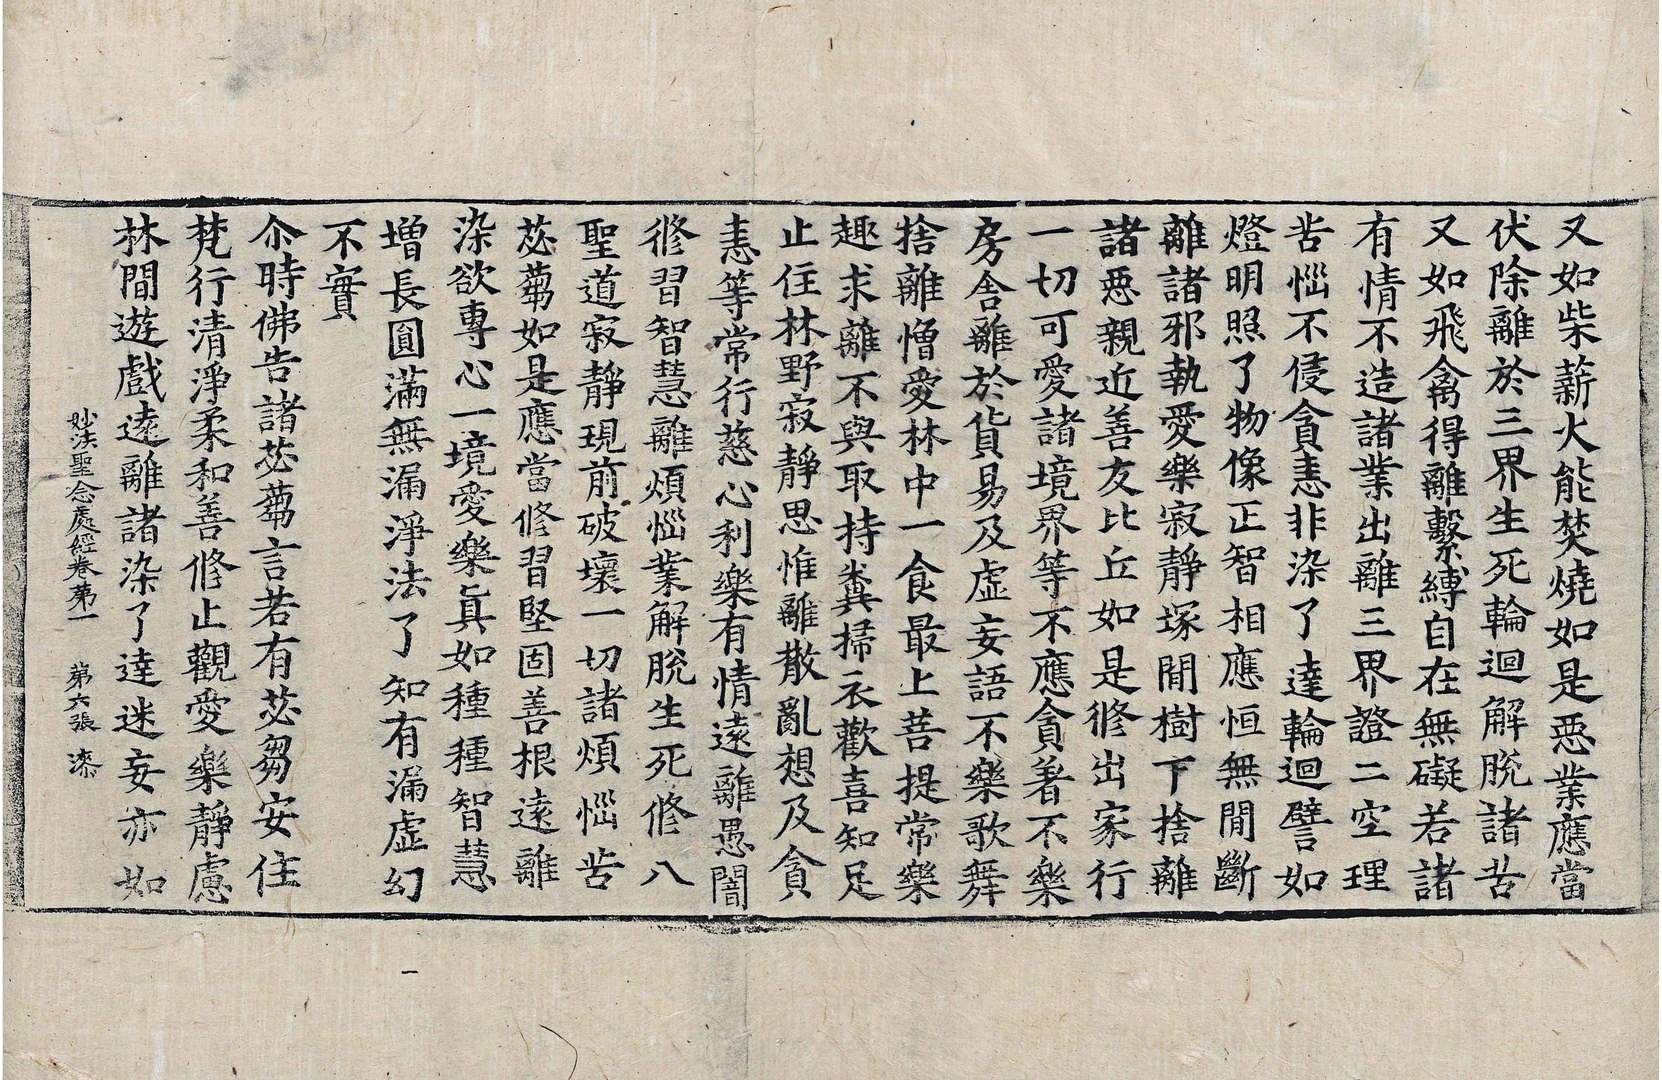 又如柴薪火能焚燒如是惡業應當
伏除離於三界生死輪迴解脫諸苦
又如飛禽得離繫縛自在無礙若諸
有情不造諸業出離三界證二空理
苦惱不侵貪恚非染了達輪迴譬如
燈明照了物像正智相應恒無間斷
離諸邪執愛樂寂靜塚間樹下捨離
諸惡親近善友比丘如是修出家行
一切可愛諸境界等不應貪著不樂
房舍離於貨易及虛妄語不樂歌舞
捨離憎愛林中一食最上菩提常樂
趣求離不與取持糞掃衣歡喜知足
止住林野寂靜思惟離散亂想及貪
恚等常行慈心利樂有情遠離愚闇
修習智慧離煩惱業解脫生死修八
聖道寂靜現前破壞一切諸煩惱苦
苾蒭如是應當修習堅固善根遠離
染欲專心一境愛樂真如種種智慧
增長圓滿無漏淨法了知有漏虛幻
不實
尒時佛告諸苾蒭言若有苾蒭安住
梵行清淨柔和善修止觀愛樂靜慮
林間遊戲遠離諸染了達迷妄亦如
妙法聖念處經卷第一 第六張 漆